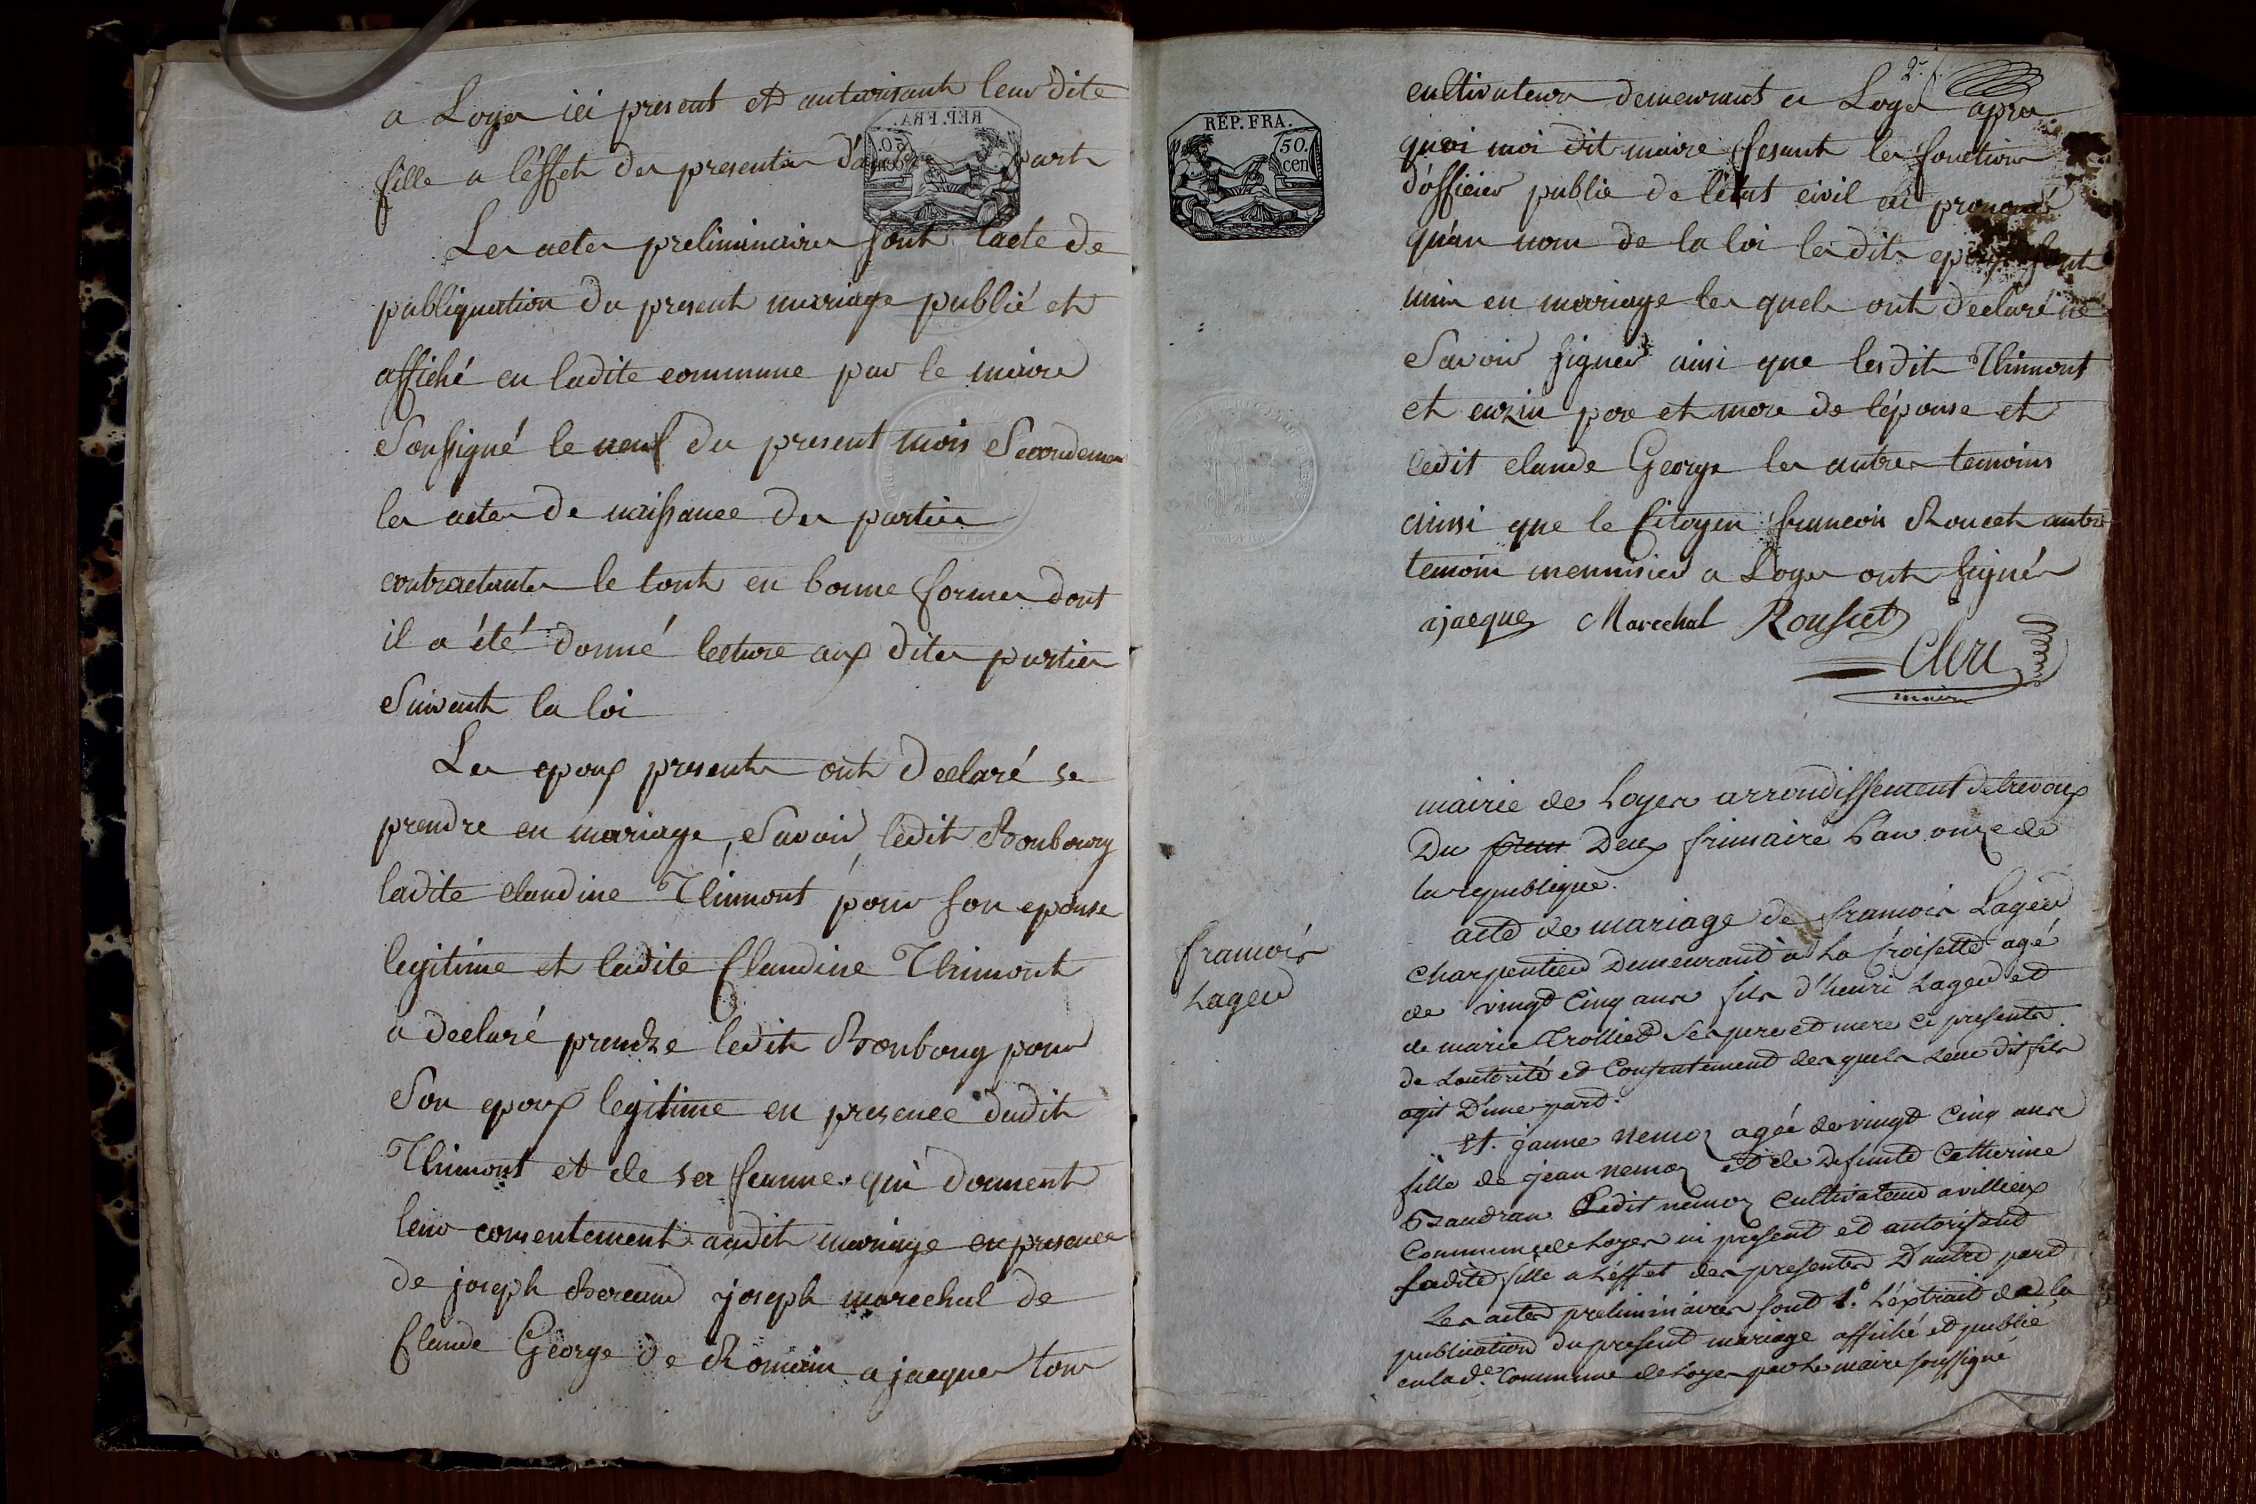 a Loyes ici present et autorisant leur dite
fille a l'éffet des presentes d'autre part
Les actes preliminaires sont l'acte de
publiquation du present mariage publié et
affiché en ladite commune par le maire
Soussigné le neuf du present mois Secondemen
les actes de naissance des parties
contractantes le tout en bonne formes dont
il a été donné lecture aux dites parties
Suivant la loi
Les epoux presents ont declaré se
prendre en mariage, Savoir ledit Bonbourg
ladite claudine Thimont pour son epouse
legitime et ladite Claudine Thimont
a declaré prendre ledit Bonboug pour
Son epoux legitime en presence dudit
Thimont et de sa femme qui donnent
leur consentement audit mariage en presence
de joseph joseph marechal de
Claude George de Romain a jacques tous
2e f.
REP. FRA.
50.
cen
cultivateurs demeurants a Loyes apres
quoi moi dit maire fesant les fonctions
d'officier public de l'état civil ai prononcé
qu'au nom de la loi les dits epoux sont
unis en mariage les quels ont declaré ne
Savoir signer ainsi que lesdits Thimont
et pere et mere de l'épouse et
ledit claude George les autres temoins
ainsi que le Citoyen francois Roucet autre
temoin menuisier a Loyes ont signés
ajacques Marechal Rousset
Clerc
maire
mairie de Loyes arrondissement de trevoux
Du Deux frimaire L'an onze de
la republique.
francois
Lager
acte de mariage de francois Lager
charpentier Demeurant a La Croisette agé
de vingt Cinq ans fils d'henri Lager et
de marie Trolliet Ses pere et mere ci presents
de Lautorité et Consentement des quels Leur dit fils
agit D'une part.
Et. janne nemoz agée de vingt Cinq ans
fille de jean nemoz et de Defunte Catherine
Bzaudran Ledit nemoz Cultivateur a villieux
Commune de Loyes ici present et autorisant
Sadite fille a L'effet des presentes D'autre part
Les actes preliminaires sont 1.º L'extrait de la
publication du present mariage affiché et publié
en lad.e Commune de Loyes par Le maire soussigné